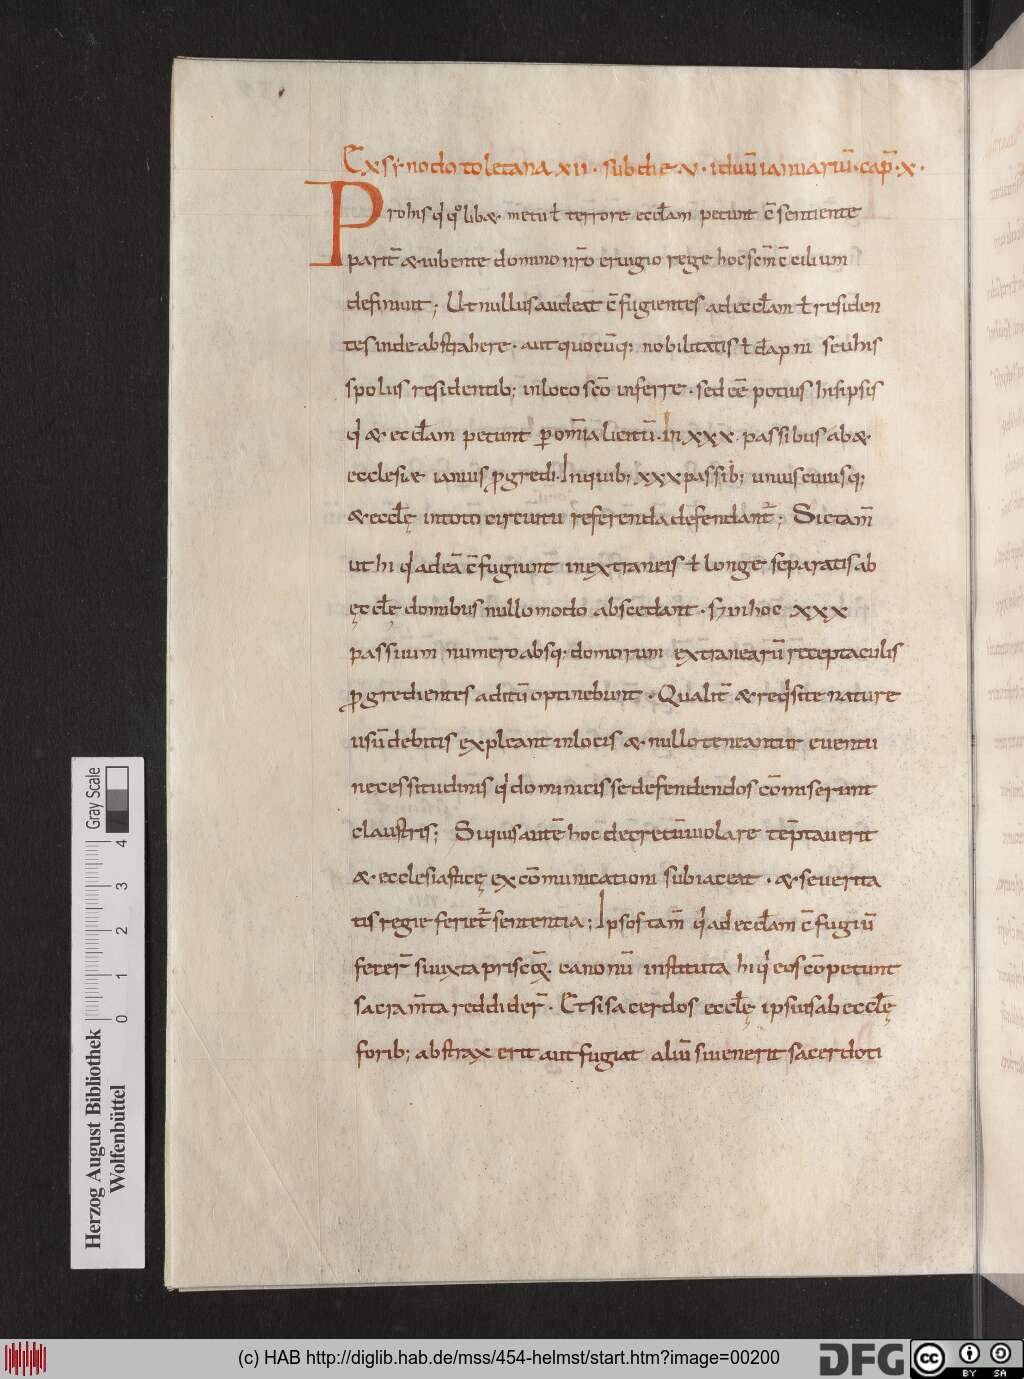 Ex synodo toletana xii · sub die · v · iduū ianuariū · cap̄ · x ·
Pro his qui quolibet metu ł terrore eccłam petunt c̄sentiente
parit̄ & iubente domino nr̄o eruigio rege hoc sc̄m c̄cilium
definiuit ; Ut nullus audeat c̄fugientes ad eccłam ł residen
tes inde abstrahere · aut quodcūq; nobilitatis ł dāpni seu his
spolus residentib; in loco sc̄o inferre · sed eē potius hisipsis
qui & eccłam petunt p omīa licitū · In xxx · passibus ab &
ecclesiae ianuis p̄gredi · In quib; xxx passib; uniuscuiusq;
& eccłę in toto circuitu referenda defendant̄ ; Sic tam̄
ut hi qui ad eā c̄fugiunt in extraneis ł longe separatis ab
ęccłę domibus nullo modo abscedant · S; in hoc xxx
passuum numero absq; domorum extranearū receptaculis
p̄gredientes aditū optinebunt · Qualit̄ & reqisite nature
usū debitis expleant in locis & nullo teneantur euentu
necessitudinis qui dominicis se defendendos cōmiserunt
claustris ; Siquis autē hoc decretū uiolare tēptauerit
& ecclesiasticę excōmunicationi subiaceat · & seuerita
tis regie feriet̄ sententia ; Ipsos tam̄ qui ad eccłam c̄fugiū
fecer̄ si iuxta priscoꝝ canonū instituta hi qui eos cōpetunt
sacram̄ta reddider̄ · Et si sacerdos eccłę ipsius ab eccłę
forib; abstrax erit aut fugiat aliū si uenerit sacerdoti
Gray Scale
0 1 2 3 4
Herzog August Bibliothek
Wolfenbüttel
(c) HAB http://diglib.hab.de/mss/454-helmst/start.htm?image=00200
DFG
cc BY SA